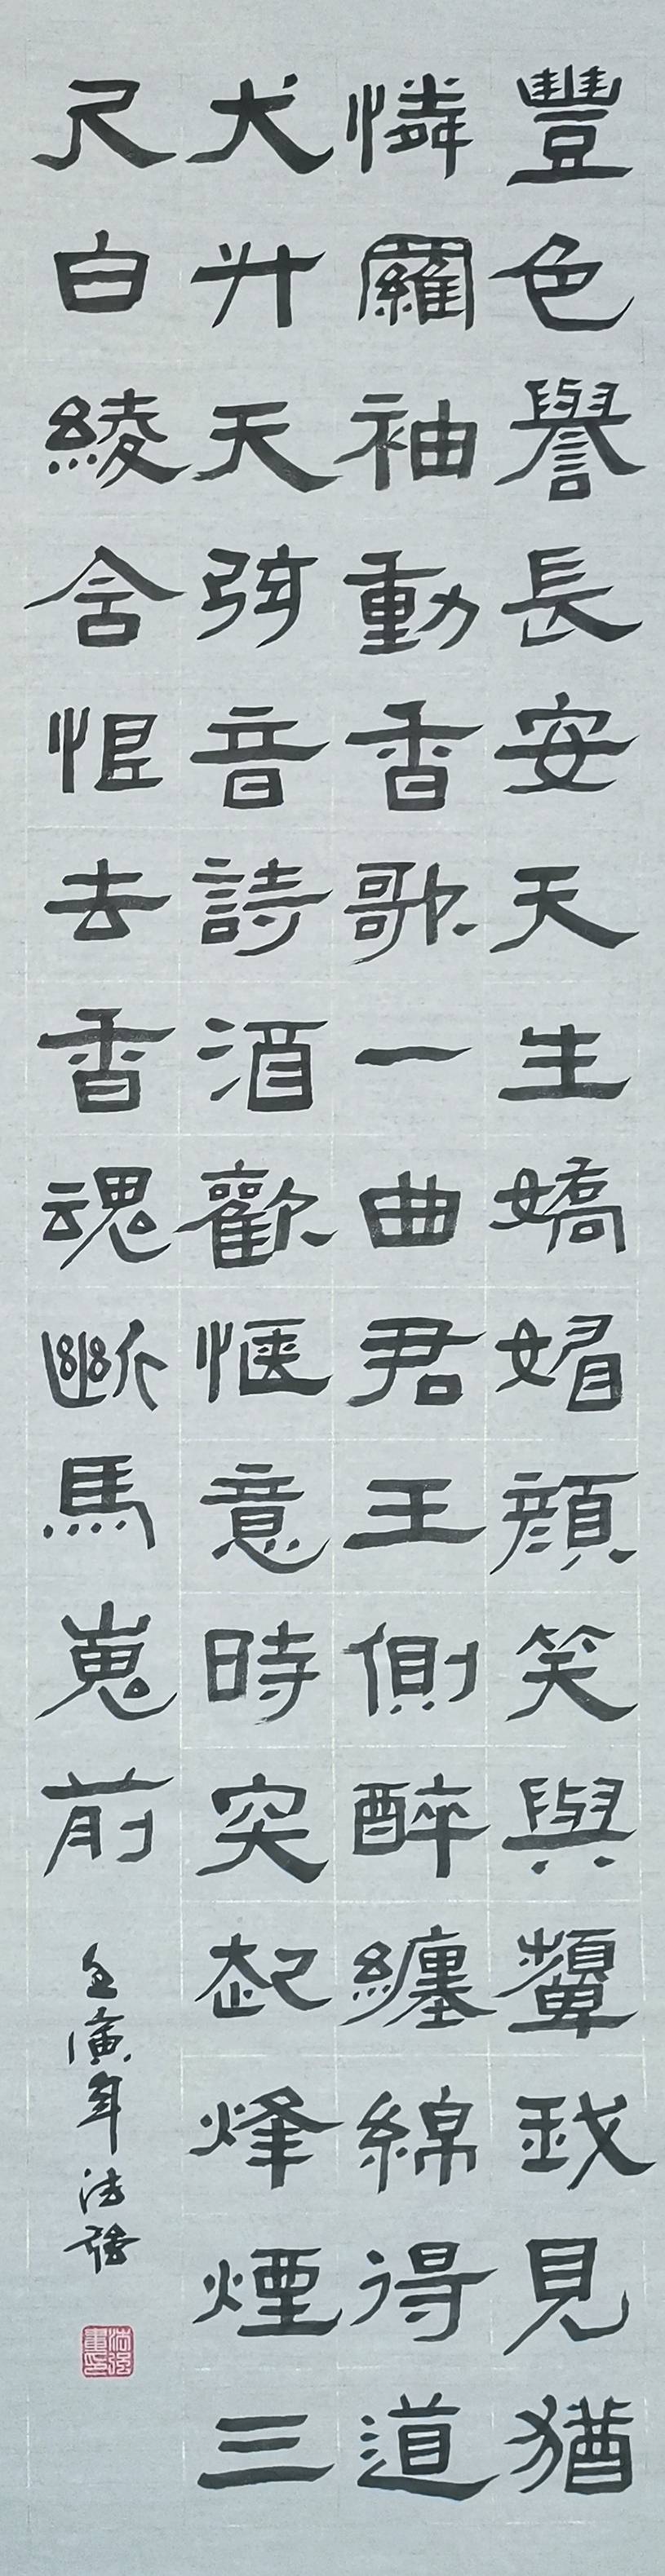 豐色譽長安天生嬌媚顏笑與顰我見猶
憐羅袖動香歌一曲君王側醉纏綿得道
犬升天弦音詩酒歡愜意時突起烽煙三
尺白綾含恨去香魂斷馬嵬前
壬寅年法強
法强書印